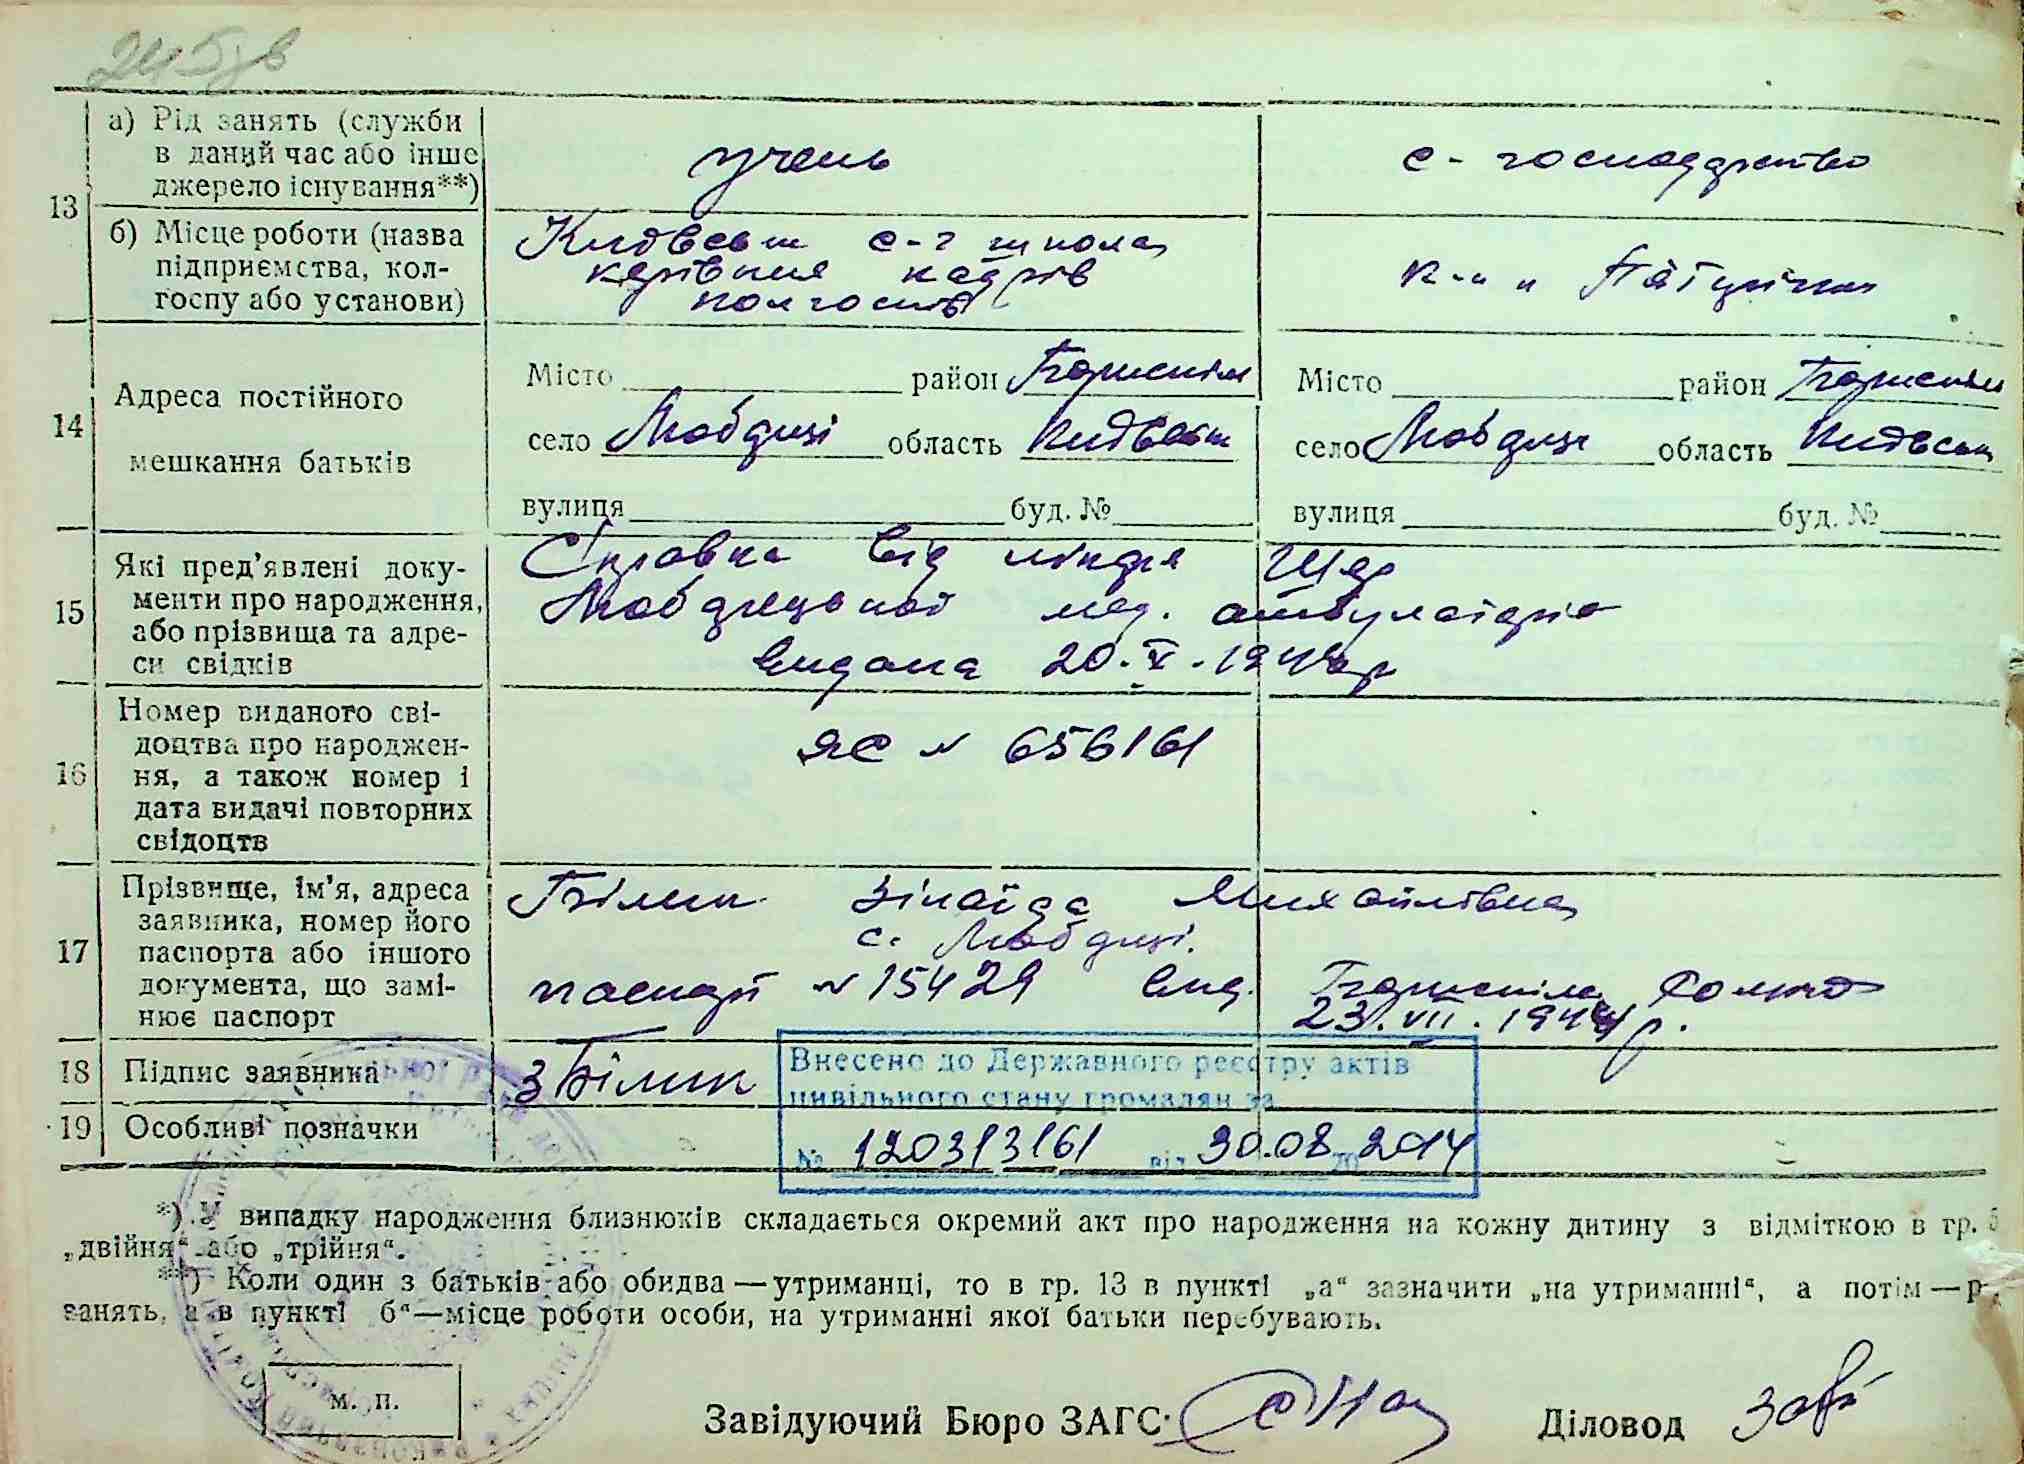 245
13
а) Рід занять (служби в даний час або інше джерело існування**)
учень
с-господарство
б) Місце роботи (назва підприємства, колгоспу або установи)
Київськ с-г школа
керівних кадрів
колгоспів
к-п
14
Адреса постійного мешкання батьків
Місто район Бориспільс
село Любарці область Київськ
вулиця буд. №
Місто район Бориспільс
село Любарці область Київськ
вулиця буд. №
15
Які пред'явлені документи про народження, або прізвища та адреси свідків
Справка від лікаря
мед. амбулаторіє
видана 20.V.1944р
16
Номер виданого свідоцтва про народження, а також номер і дата видачі повторних свідоцтв
ЯС № 656161
17
Прізвище, ім'я, адреса заявника, номер його паспорта або іншого документа, що замінює паспорт
Білик Зінаїда Михайлівна
с. Любарці.
паспорт № 15429 вид.
23.VII.1944р.
18
Підпис заявника
З Білик
19
Особливі позначки
Внесено до Державного реєстру актів
цивільного стану громадян за
№ 120313161 від 30.08.2014
*) У випадку народження близнюків складається окремий акт про народження на кожну дитину з відміткою в гр. 5
„двійня“ або „трійня“.
**) Коли один з батьків або обидва—утриманці, то в гр. 13 в пункті „а“ зазначити „на утриманні“, а потім—р
занять, а в пункті б“—місце роботи особи, на утриманні якої батьки перебувають.
м. п.
Завідуючий Бюро ЗАГС
Діловод